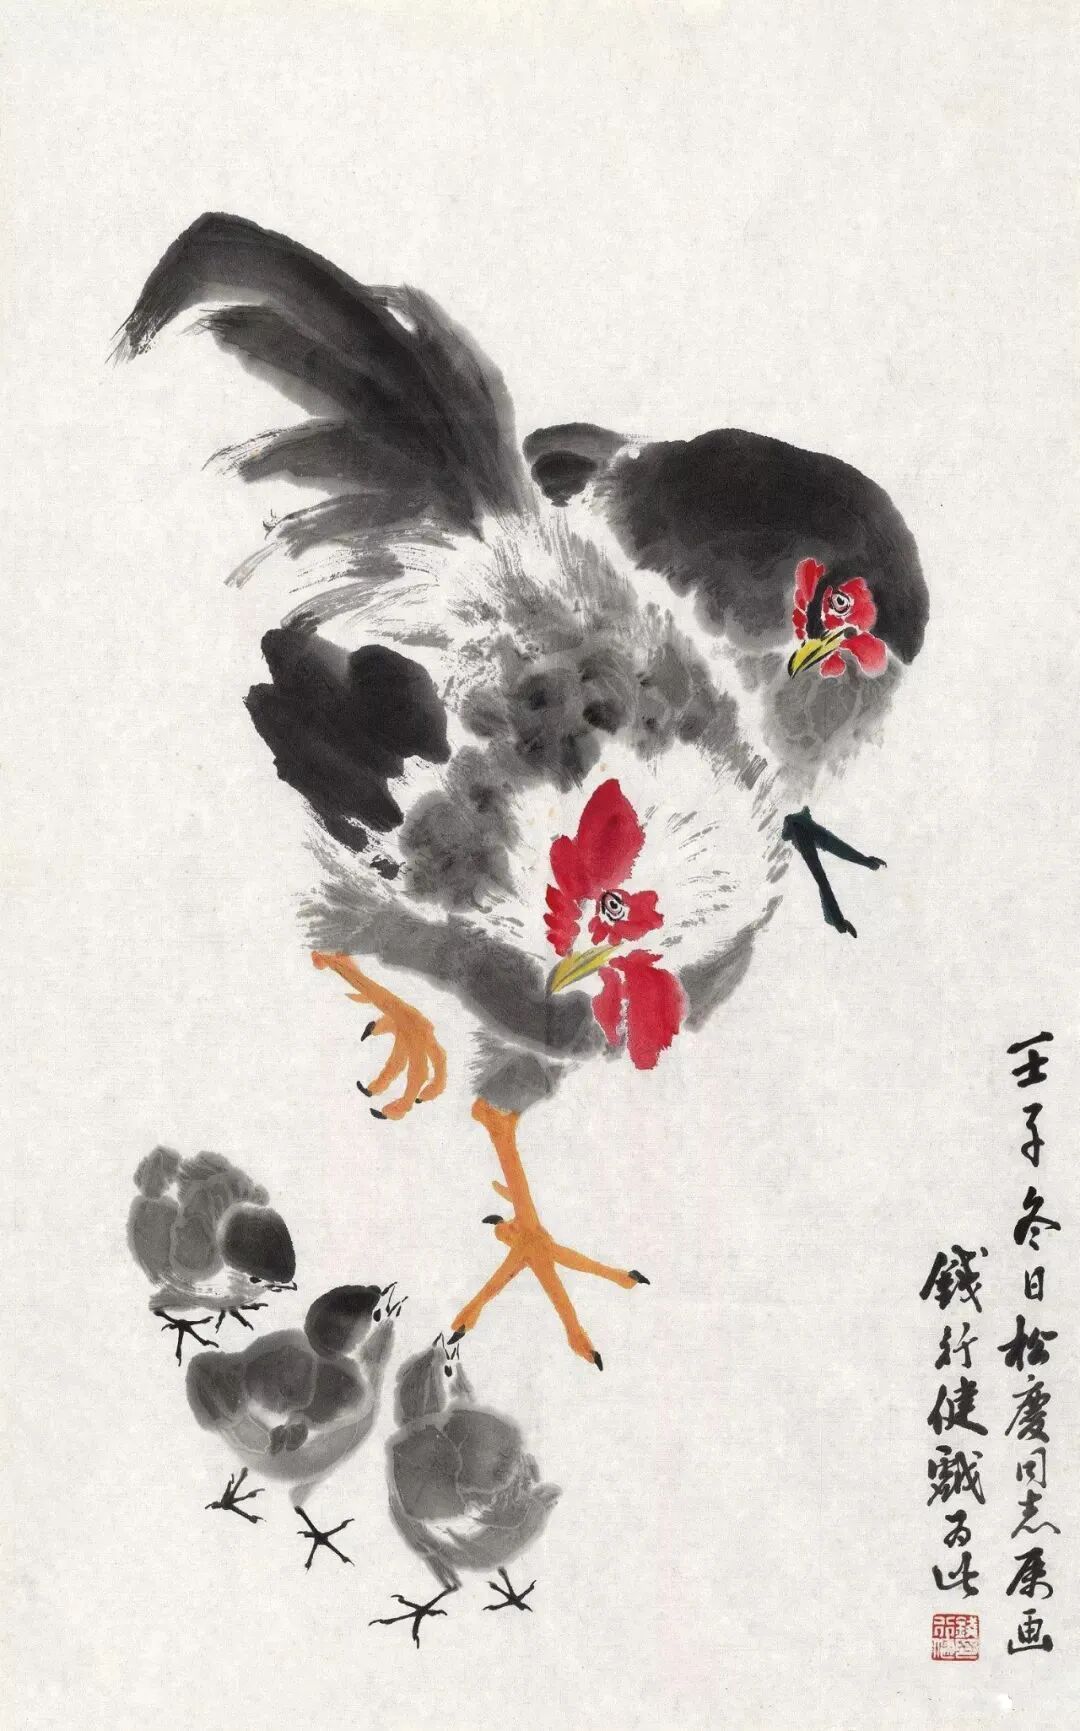 壬子冬日松慶同志属画
錢行健戲为此